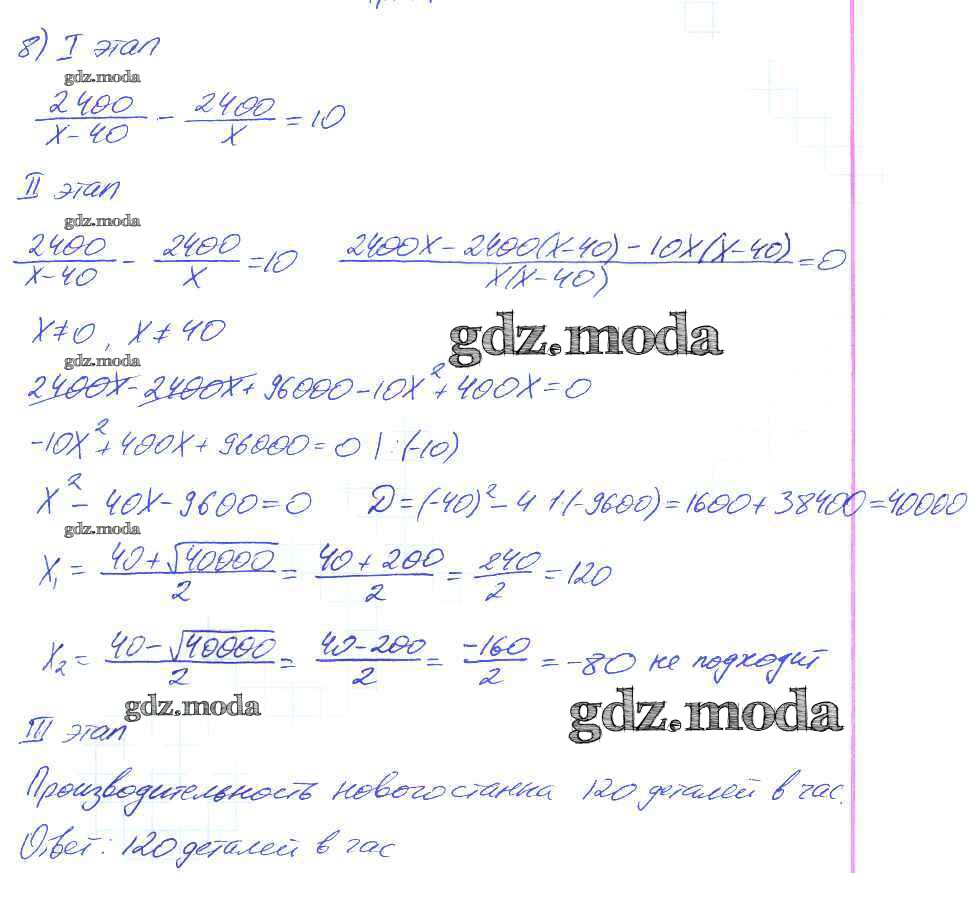 8) I этап
gdz.moda
2400/(x-40) - 2400/x = 10
II этап
gdz.moda
2400/(x-40) - 2400/x = 10   (2400x - 2400(x-40) - 10x(x-40))/(x(x-40)) = 0
x≠0, x≠40
gdz.moda
gdz.moda
2400x - 2400x + 96000 - 10x² + 400x = 0
-10x² + 400x + 96000 = 0 | :(-10)
x² - 40x - 9600 = 0   D = (-40)² - 4·1·(-9600) = 1600 + 38400 = 40000
gdz.moda
x₁ = (40+√40000)/2 = (40+200)/2 = 240/2 = 120
x₂ = (40-√40000)/2 = (40-200)/2 = -160/2 = -80 не подходит
gdz.moda
gdz.moda
III этап
Производительность нового станка 120 деталей в час.
Ответ: 120 деталей в час